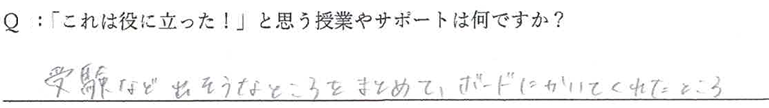 Q ：「これは役に立った！」と思う授業やサポートは何ですか？
受験など出そうなところをまとめて、ボードにかいてくれたところ